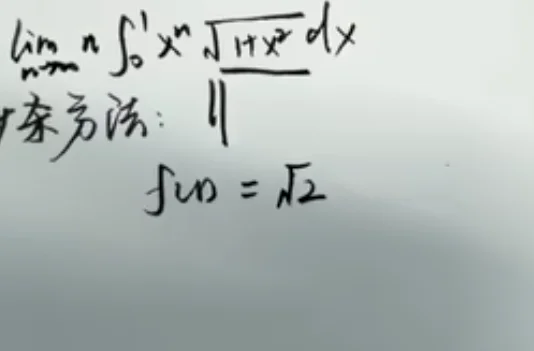 lim n→∞ n ∫₀¹ xⁿ √(1+x²) dx
杂方法: ||
f(1) = √2